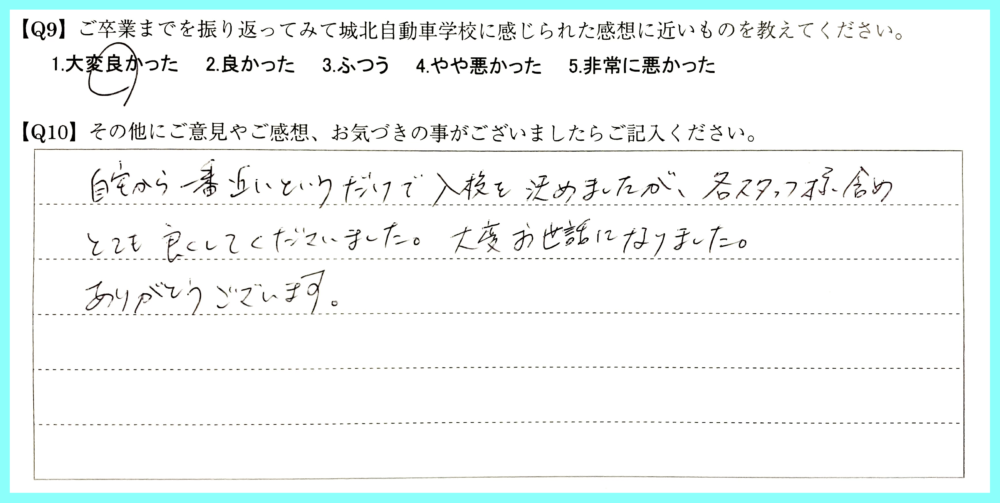 【Q9】ご卒業までを振り返ってみて城北自動車学校に感じられた感想に近いものを教えてください。
1.大変良かった 2.良かった 3.ふつう 4.やや悪かった 5.非常に悪かった
【Q10】その他にご意見やご感想、お気づきの事がございましたらご記入ください。
自宅から一番近いというだけで入校を決めましたが、各スタッフ様含め
とても良くしてくださいました。大変お世話になりました。
ありがとうございます。